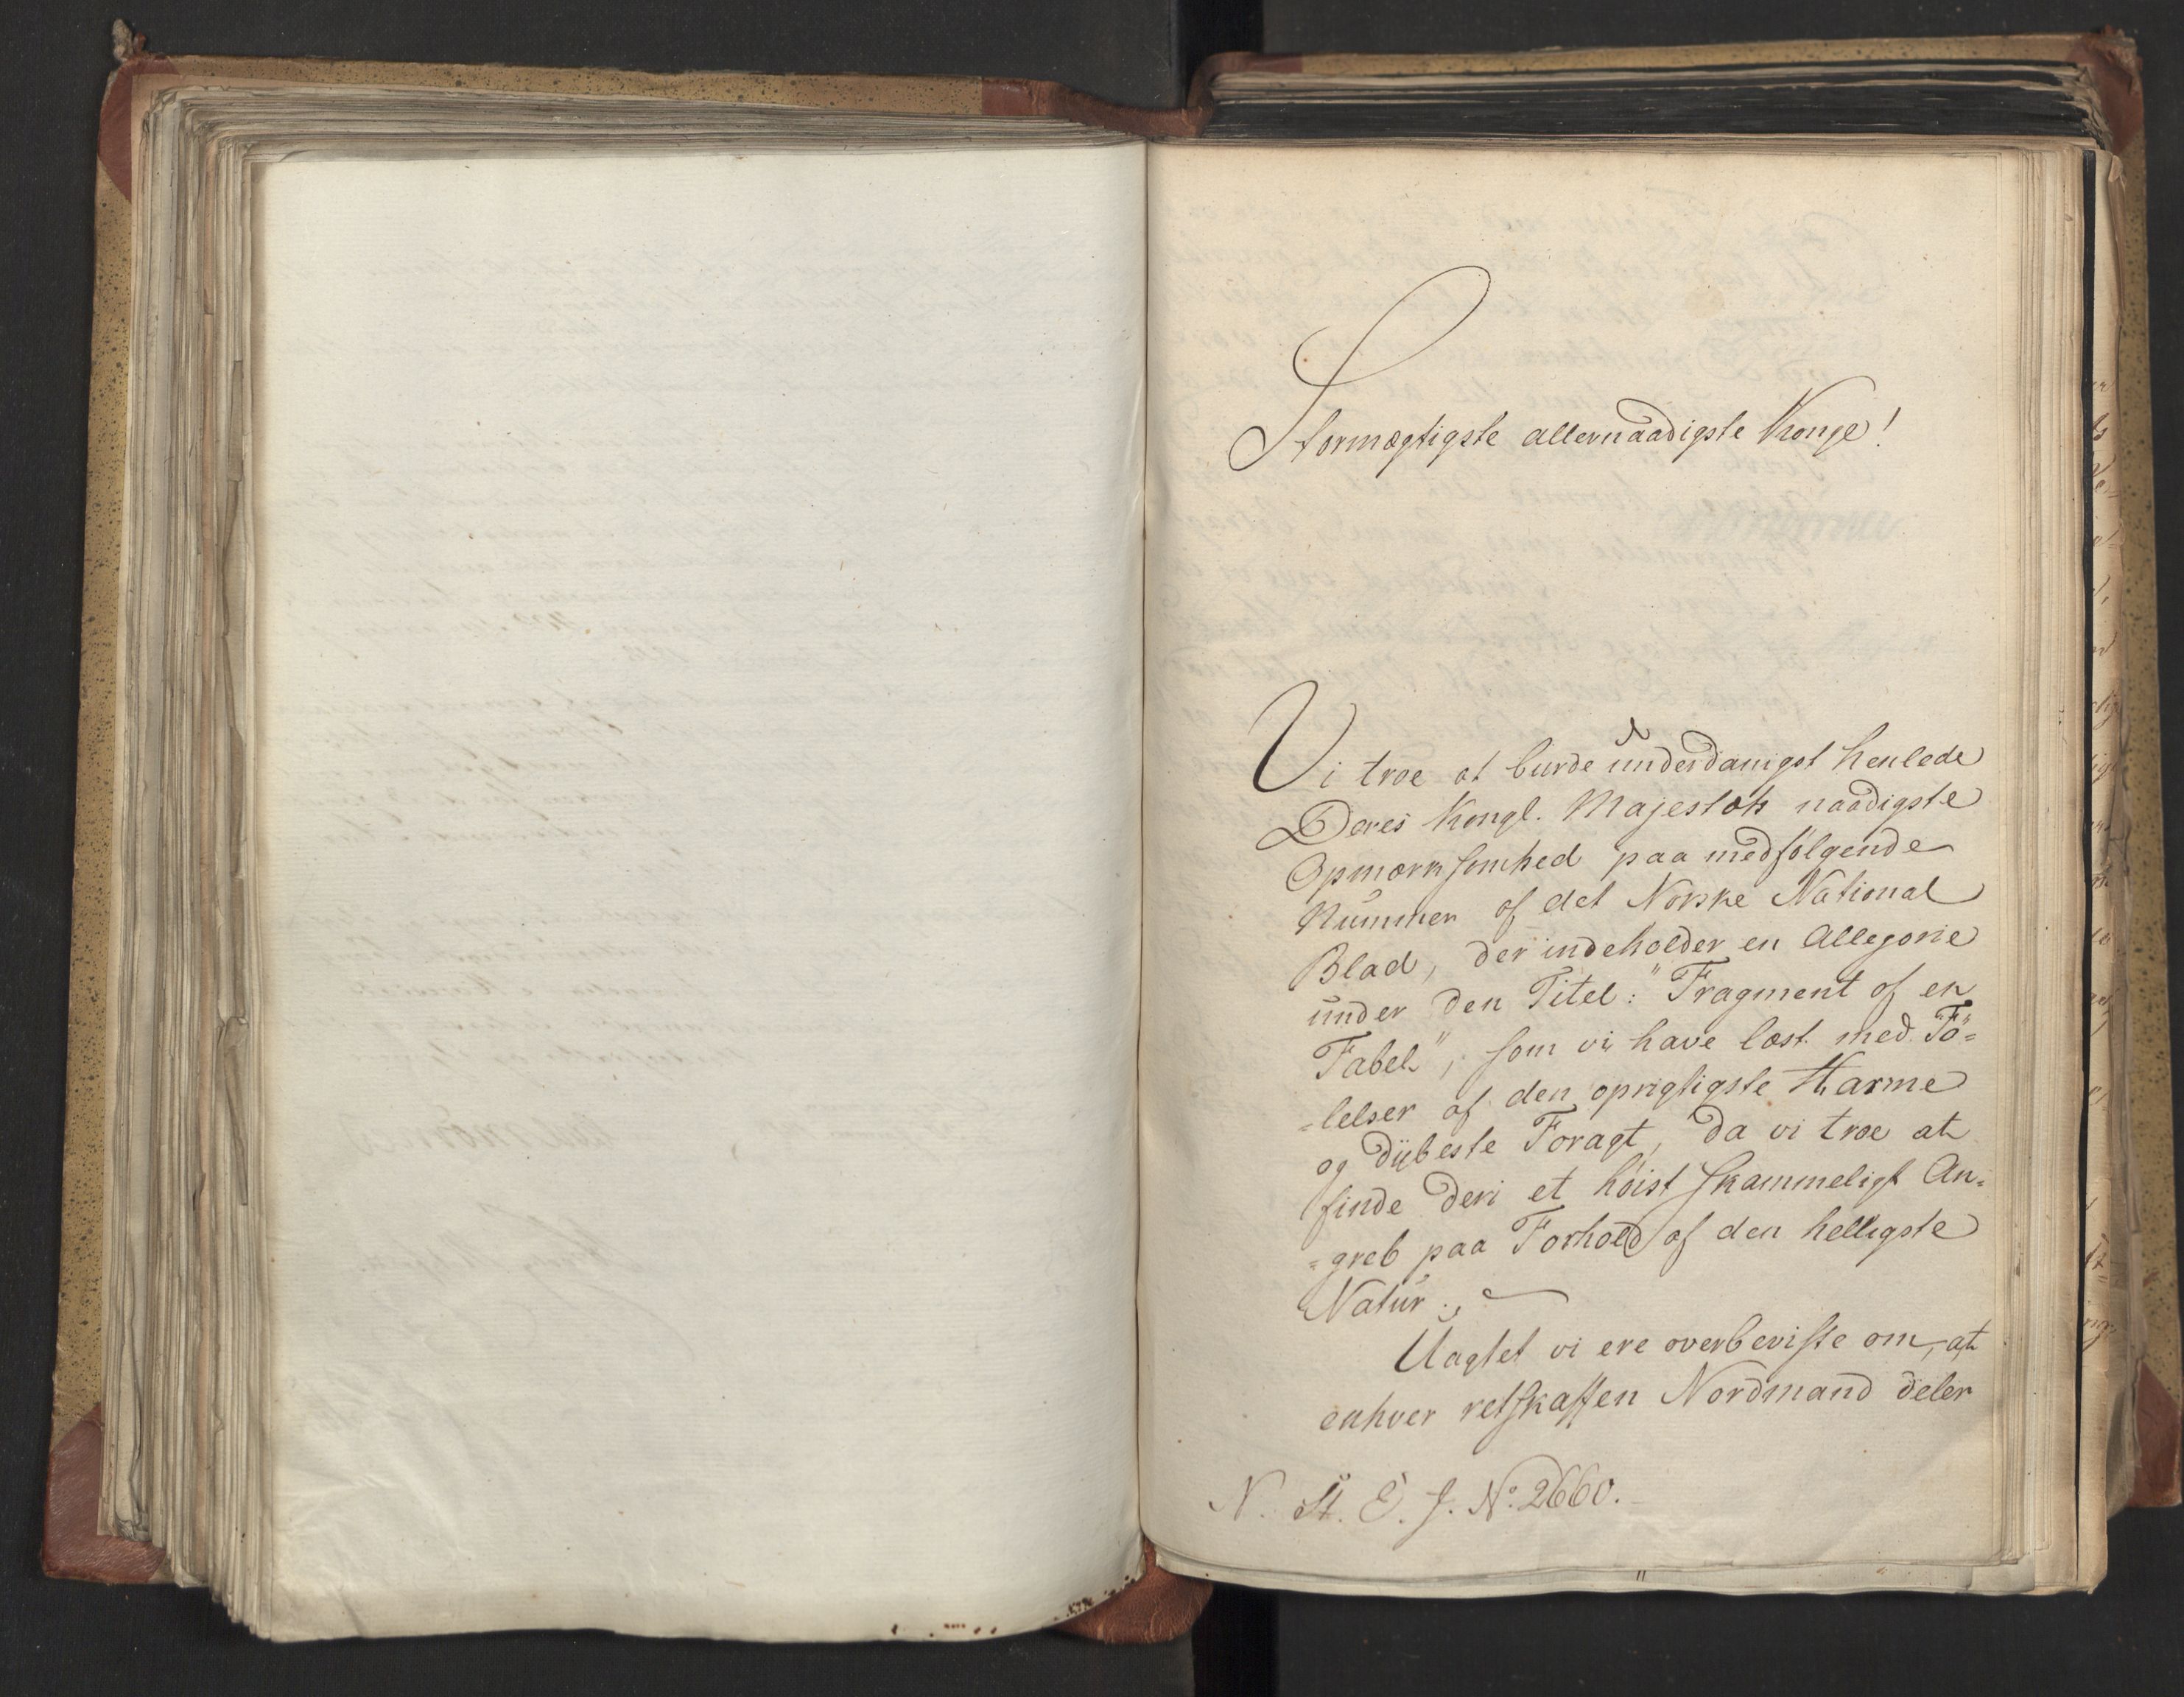 Stormægtigste allernaadigste Konge!
Vi troe at burde underdanigst henlede
Deres Kongl. Majestæts naadigste
Opmærksomhed paa medfølgende
Nummer af det Norske National
Blad, der indeholder en Allegorie
under den Titel: "Fragment af en
Fabel", som vi have læst med Fö=
=lelser af den oprigtigste Harme
og dybeste Foragt, da vi troe at
finde deri et höist skammeligt An=
=greb paa Forhold af den helligste
Natur.
Uagtet vi ere overbeviste om, at
enhver retskaffen Nordmand deler
N. St. E. J. No. 2660.